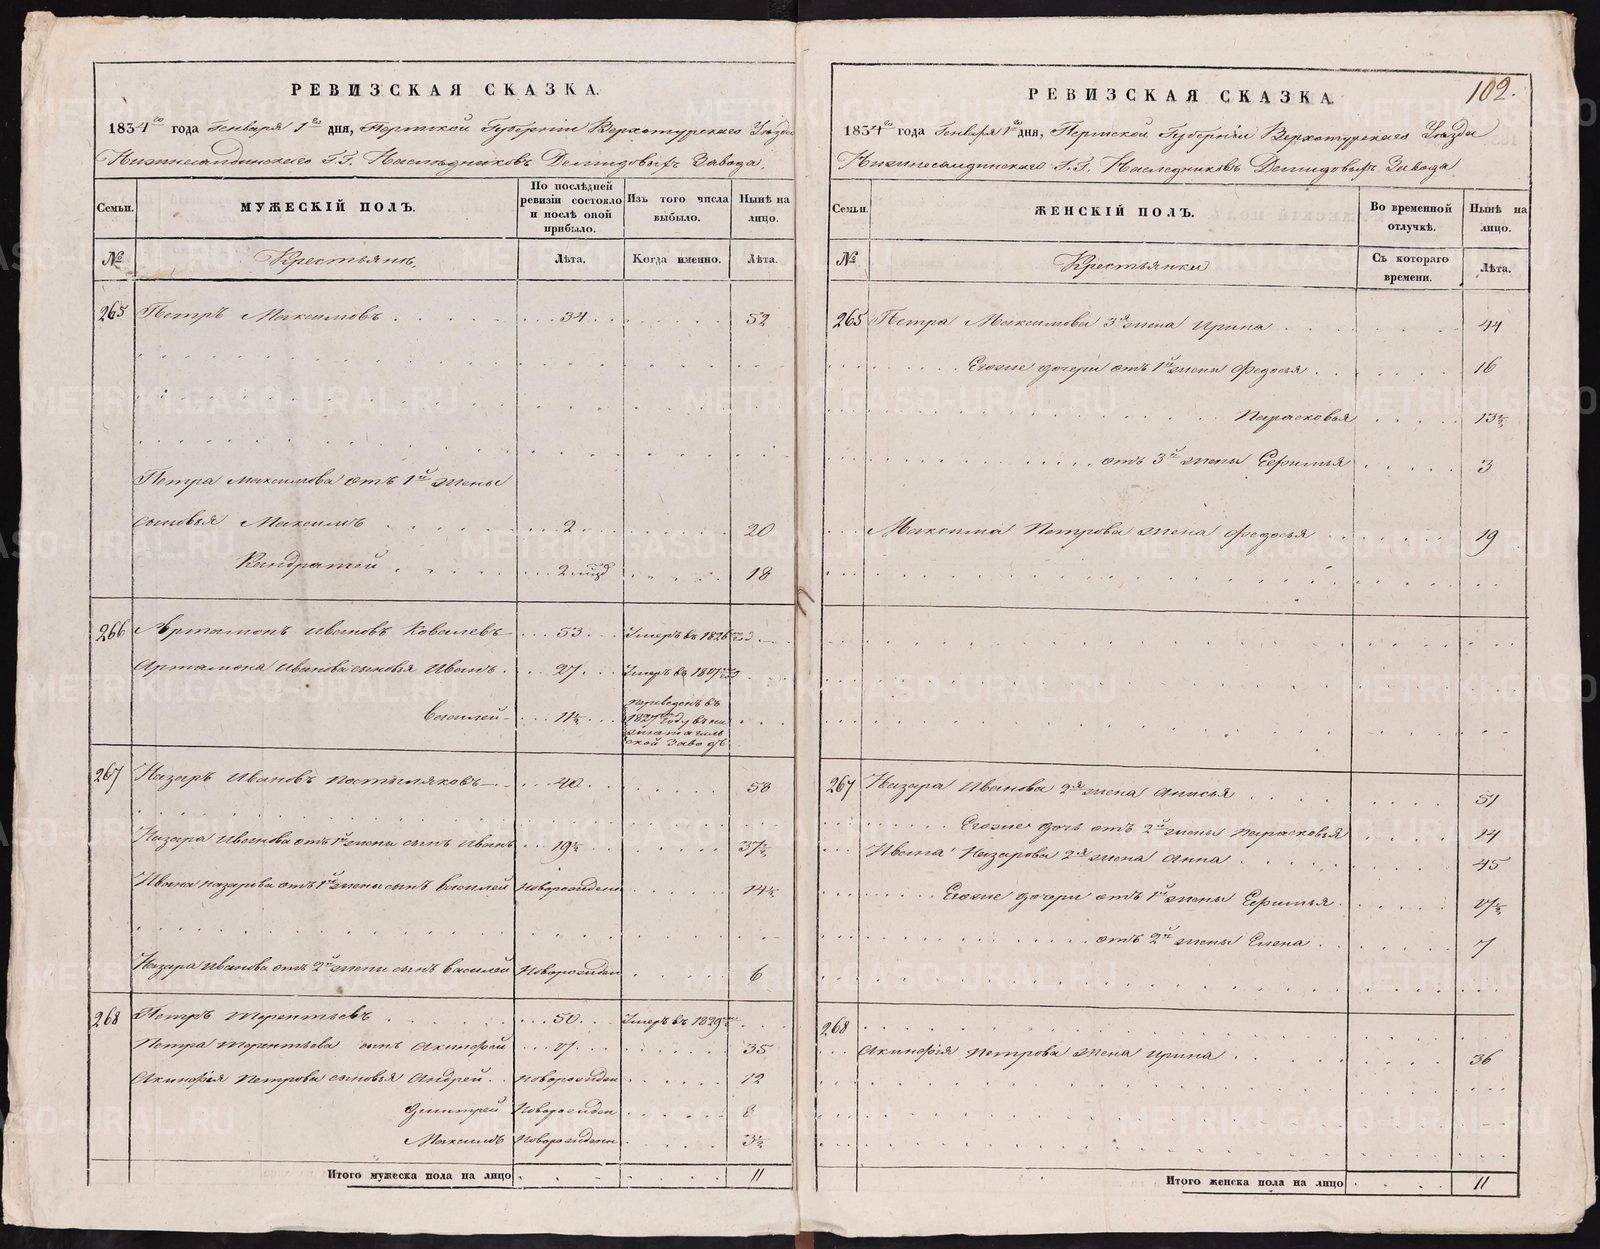 РЕВИЗСКАЯ СКАЗКА.
1834го года Генваря 1го дня, Пермской Губернии Верхотурскаго Уезда
Нижнесалдинскаго Г.Г. Наследниковъ Демидовыхъ Завода.
Семьи.
МУЖЕСКІЙ ПОЛЪ.
По послѣдней ревизіи состояло и послѣ оной прибыло.
Изъ того числа выбыло.
Нынѣ на лицо.
№
Крестьянъ.
Лѣта.
Когда именно.
Лѣта.
265 Петръ Максимовъ 34 52
Петра Максимова отъ 1й жены
сыновья Максимъ 2 20
Кондратей 2 18
266 Артамонъ Ивановъ Ковалевъ 53 Умеръ въ 1826
Артамона Иванова сыновья Иванъ 27 Умеръ въ 1827
Василей 11½ переведенъ въ
1827 году въ ни
жнетагиль
ской Заводъ
267 Назаръ Ивановъ Постыляковъ 40 58
Назара Иванова отъ 1й жены сынъ Иванъ 19½ 37½
Ивана Назарова отъ 1й жены сынъ Василей Новорожденъ 14½
Назара Иванова отъ 2й жены сынъ Василей Новорожден 6
268 Петръ Терентьевъ 50 Умеръ въ 1829
Петра Терентьева сынъ Акинфей 17 35
Акинфія Петрова сыновья Андрей Новорожден 12
Дмитрей Новорожден 8
Максимъ Новорожденъ 3½
Итого мужеска пола на лицо 11
102.
РЕВИЗСКАЯ СКАЗКА.
1834го года Генваря 1го дня, Пермской Губерніи Верхотурскаго Уезда
Нижнесалдинскаго Г.Г. Наследниковъ Демидовыхъ Завода
Семьи.
ЖЕНСКІЙ ПОЛЪ.
Во временной отлучкѣ.
Нынѣ на лицо.
№
Крестьянки
Съ котораго времени.
Лѣта.
265 Петра Максимова 3я жена Ирина 44
Егоже дочери отъ 1й жены Федосья 16
Парасковья 13½
отъ 3й жены Ефимья 3
Максима Петрова жена Федосья 19
267 Назара Иванова 2я жена Анисья 51
Егоже дочь отъ 2й жены Парасковья 14
Ивана Назарова 2я жена Анна 45
Егоже дочери отъ 1й жены Ефимья 17½
отъ 2й жены Елена 7
268
Акинфія Петрова жена Ирина 36
Итого женска пола на лицо 11
METRIKI.GASO-URAL.RU